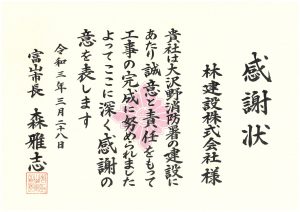 感謝状
林建設株式会社 様
貴社は大沢野消防署の建設に
あたり誠意と責任をもって
工事の完成に努められました
よってここに深く感謝の
意を表します
令和三年三月二十八日
富山市長 森雅志